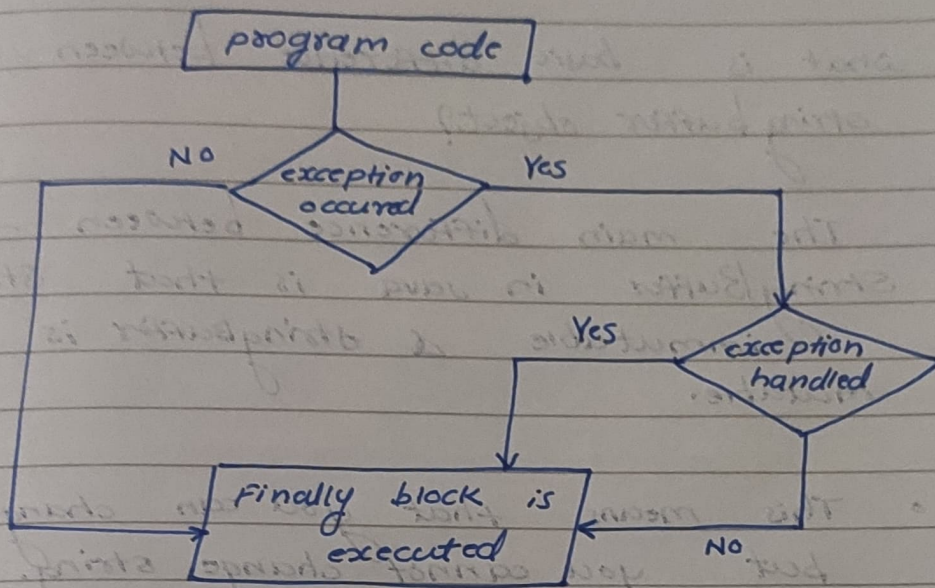 program code
NO
Yes
exception
occured
Yes
exception
handled
Finally block is
executed
NO